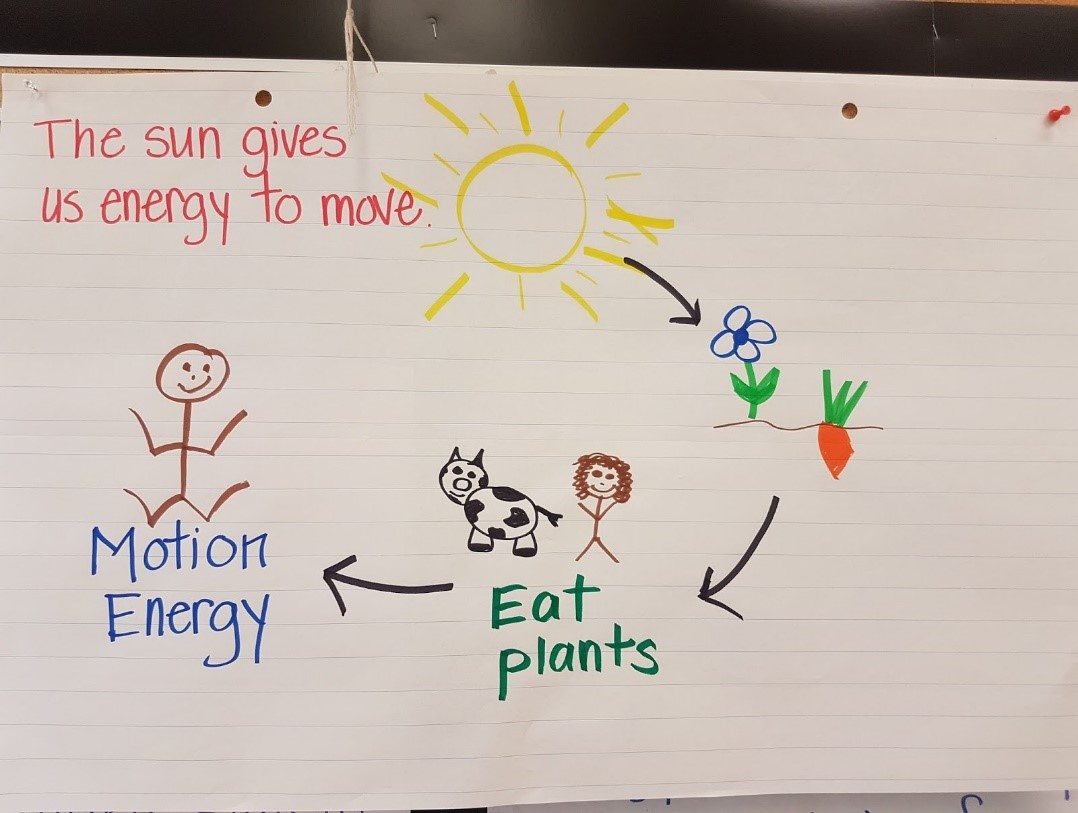 The sun gives
us energy to move.
Motion
Energy
Eat
plants